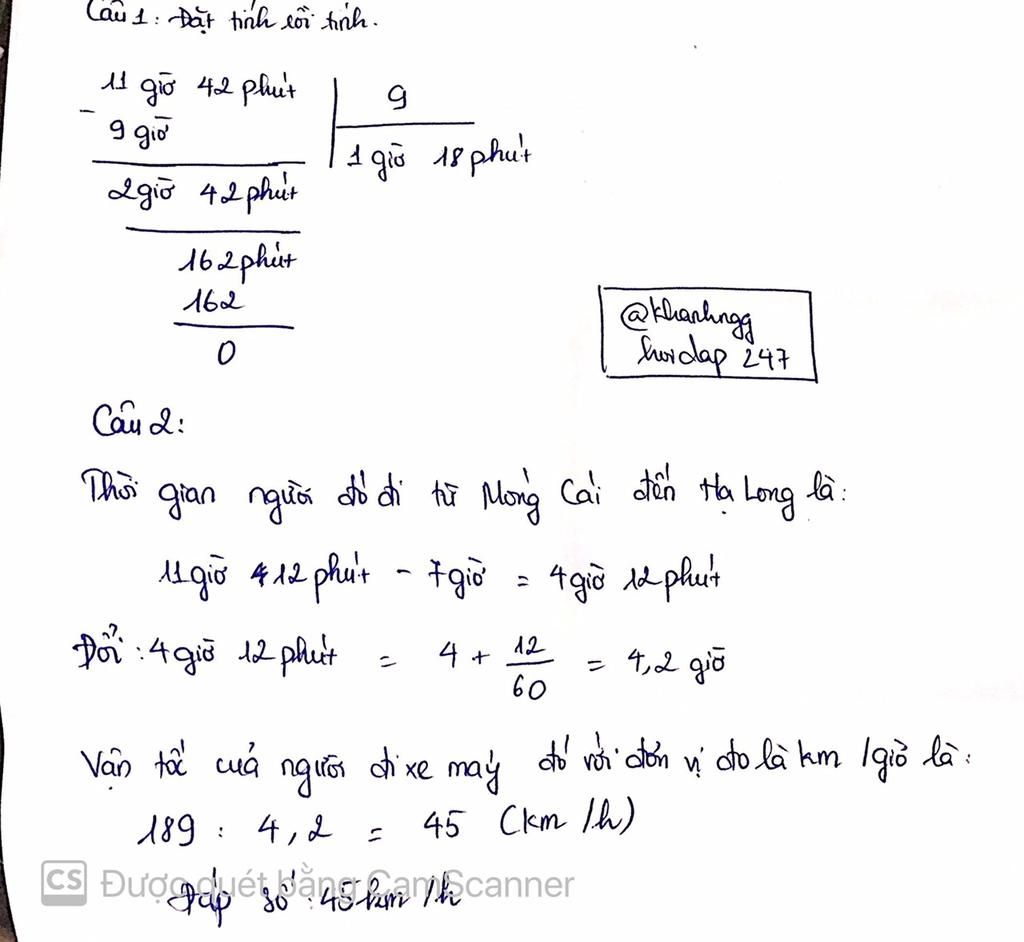 Câu 1: Đặt tính rồi tính.
11 giờ 42 phút 9
- 9 giờ
1 giờ 18 phút
2 giờ 42 phút
162 phút
162
0
@khanhngg
hoidap 247
Câu 2:
Thời gian người đó đi từ Móng Cái đến Hạ Long là:
11 giờ 12 phút - 7 giờ = 4 giờ 12 phút
Đổi: 4 giờ 12 phút = 4 + 12/60 = 4,2 giờ
Vận tốc của người đi xe máy đó với đơn vị đo là km /giờ là:
189 : 4,2 = 45 (km /h)
Đáp số: 45 km /h
CS Được quét bằng CamScanner